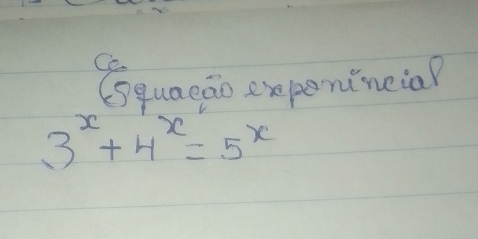 Equação exponincial
3^x + 4^x = 5^x